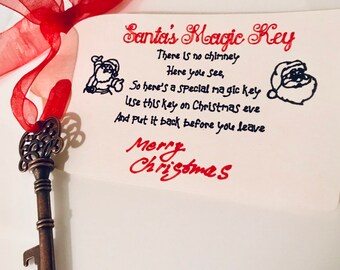 Santa's Magic Key
There is no chimney
Here you see,
So here's a special magic key
Use this key on Christmas eve
And put it back before you leave
Merry
Christmas